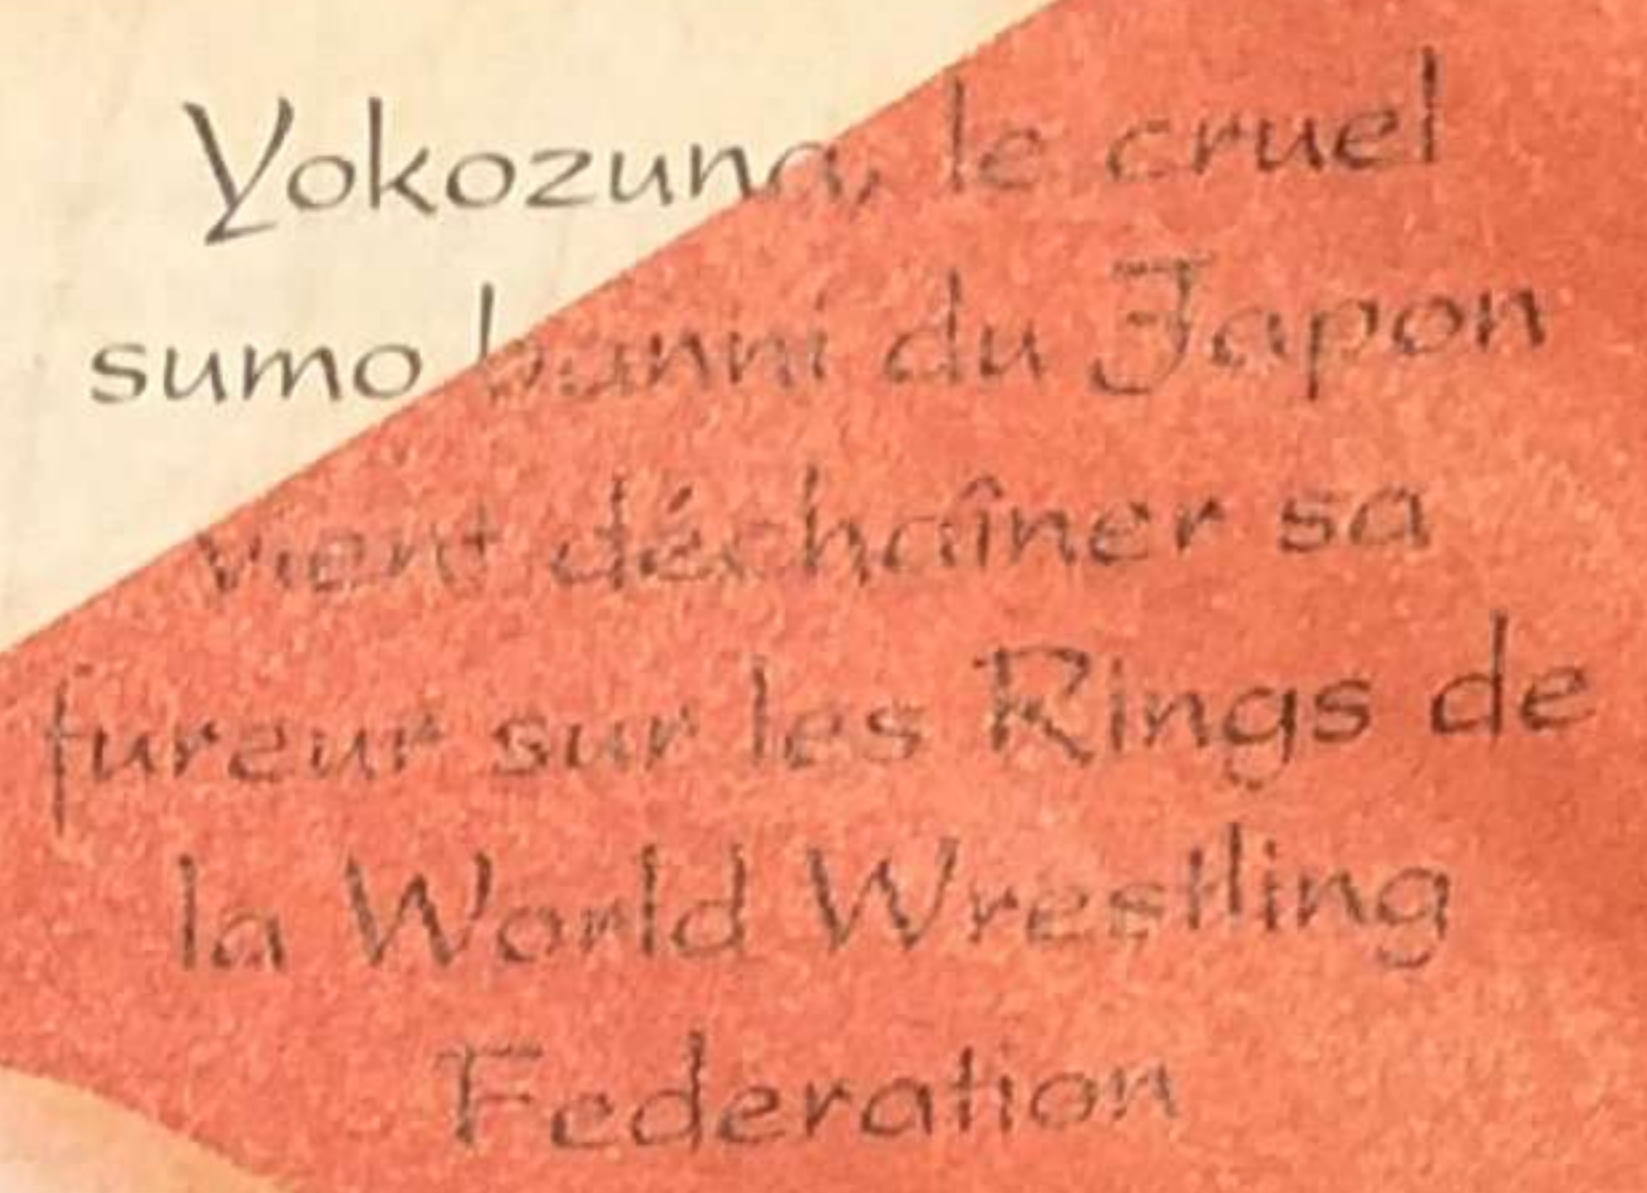 Yokozuna, le cruel
sumo banni du Japon
vient déchaîner sa
fureur sur les Rings de
la World Wrestling
Federation